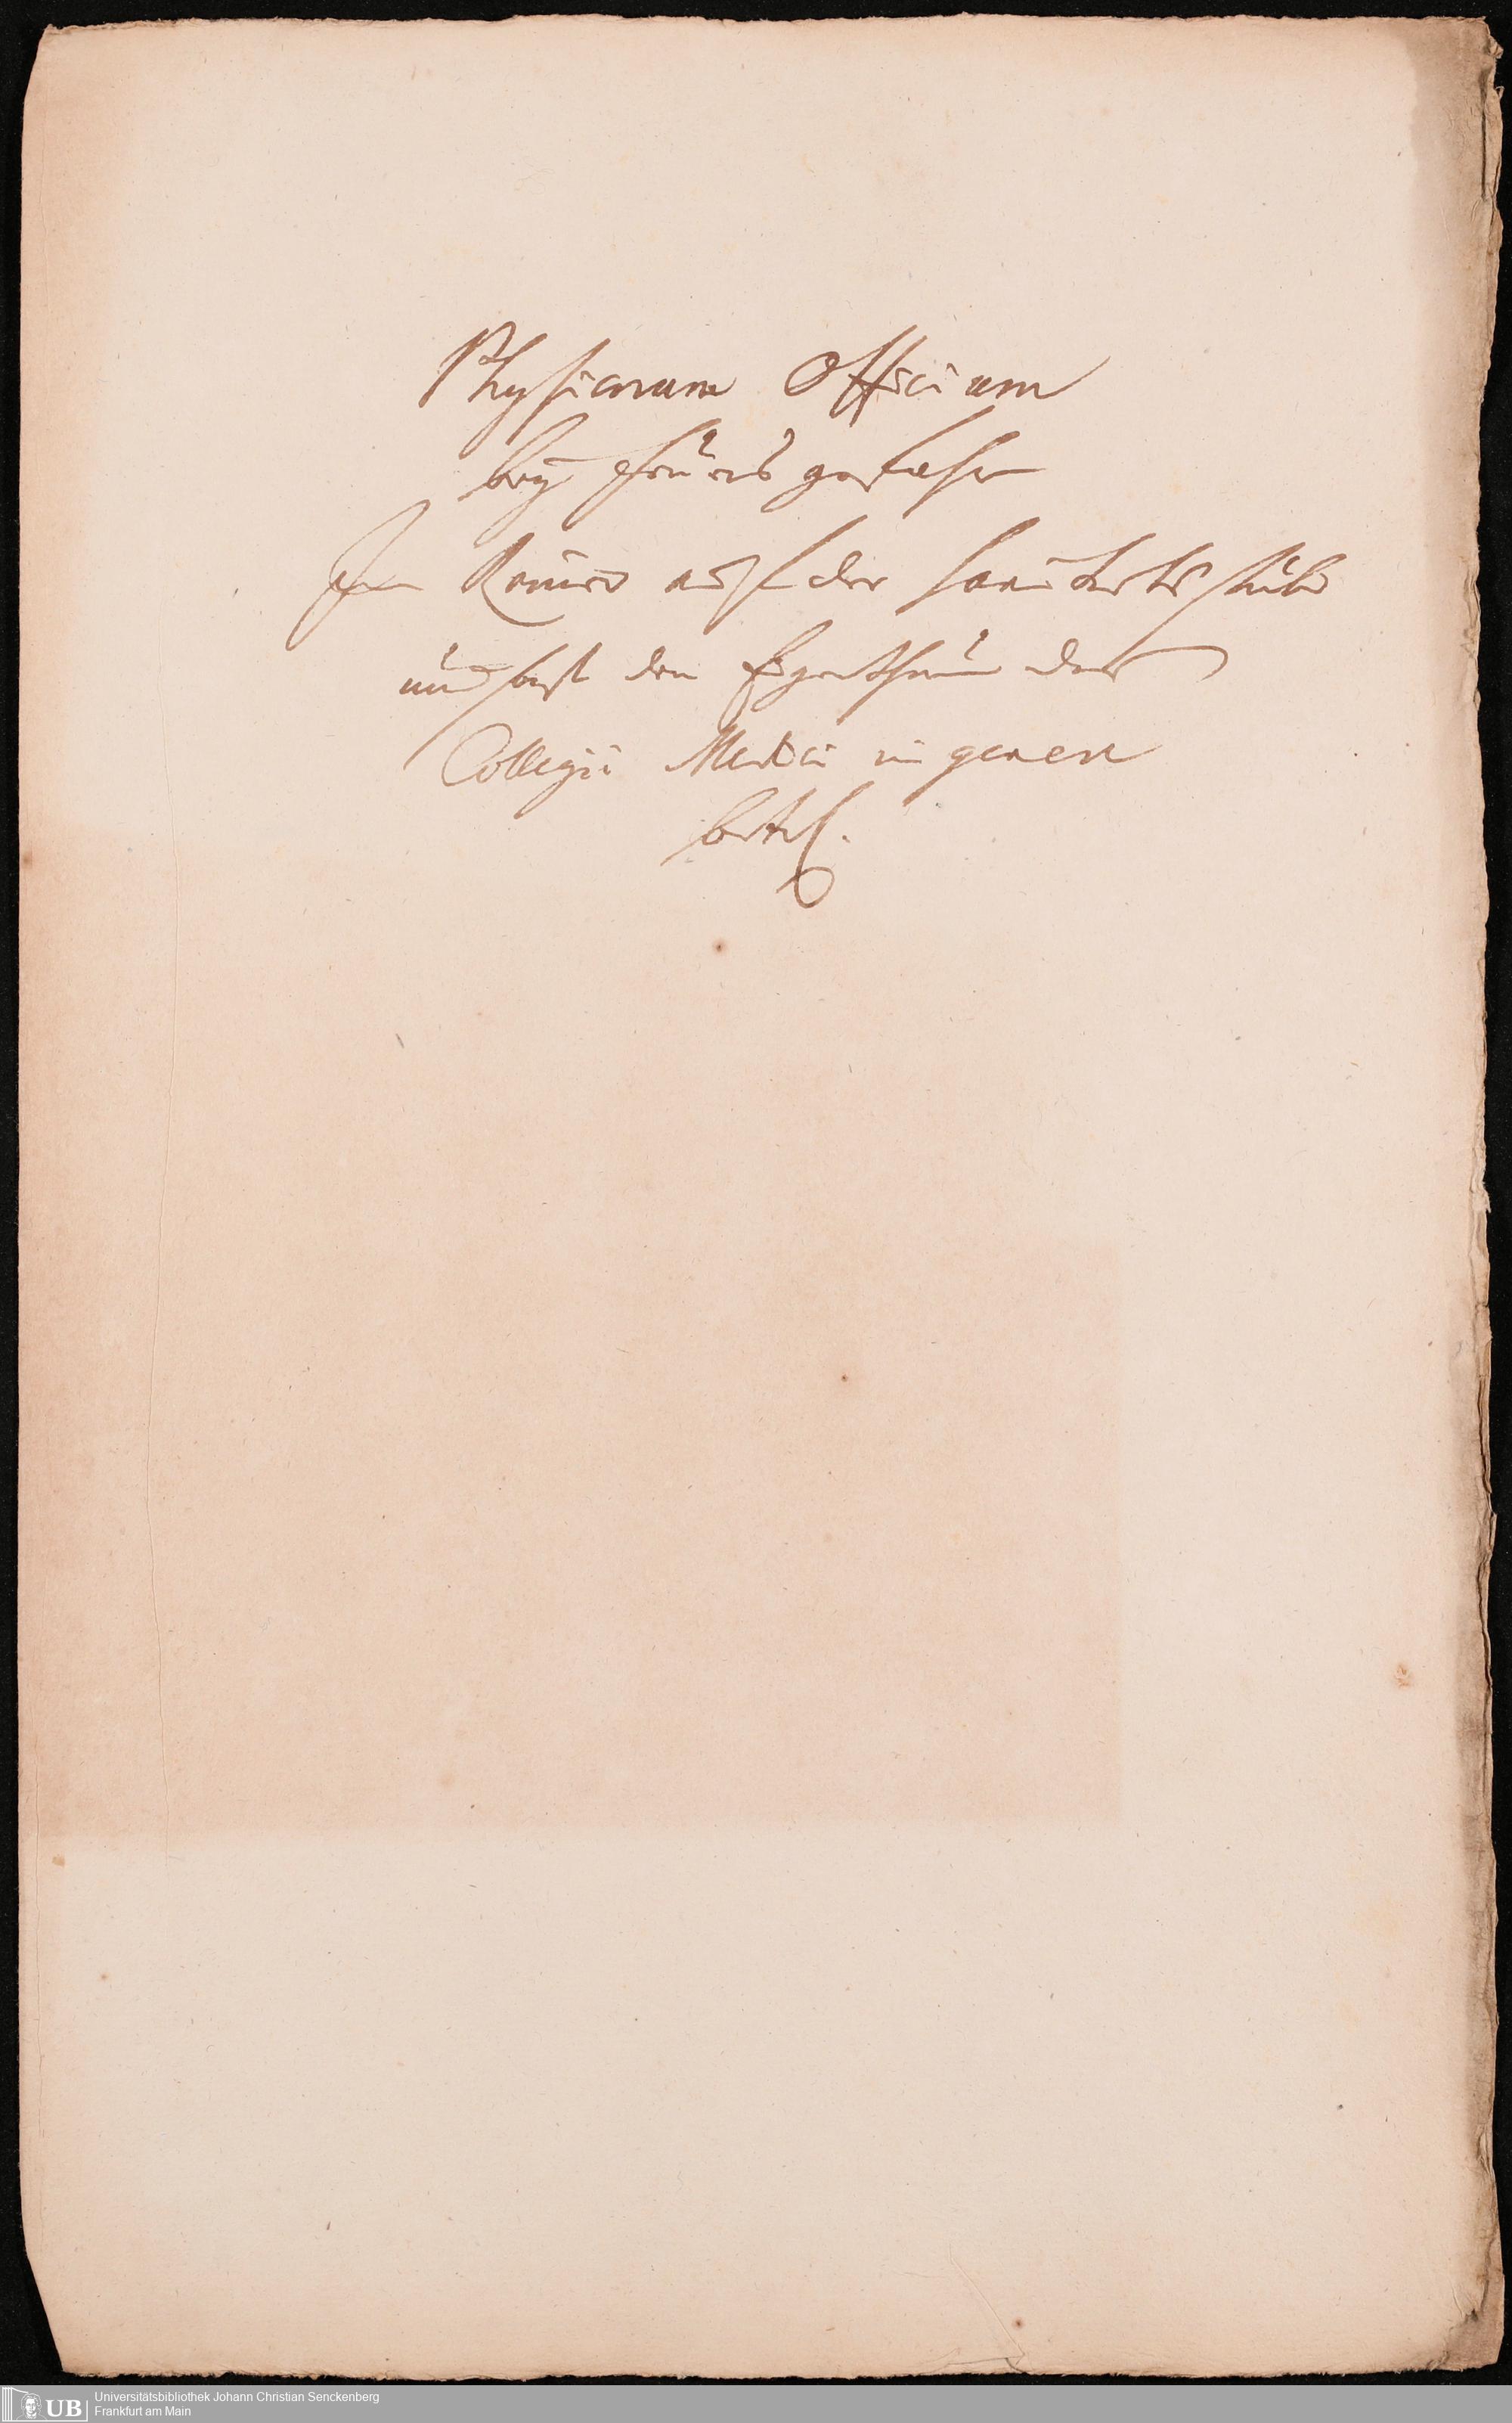 Physicorum Officium
bey feuers gefahr
Im Römer auf der
und den Eigenthum des
Collegii Medici in genere
betrf.
UB
Universitätsbibliothek Johann Christian Senckenberg
Frankfurt am Main